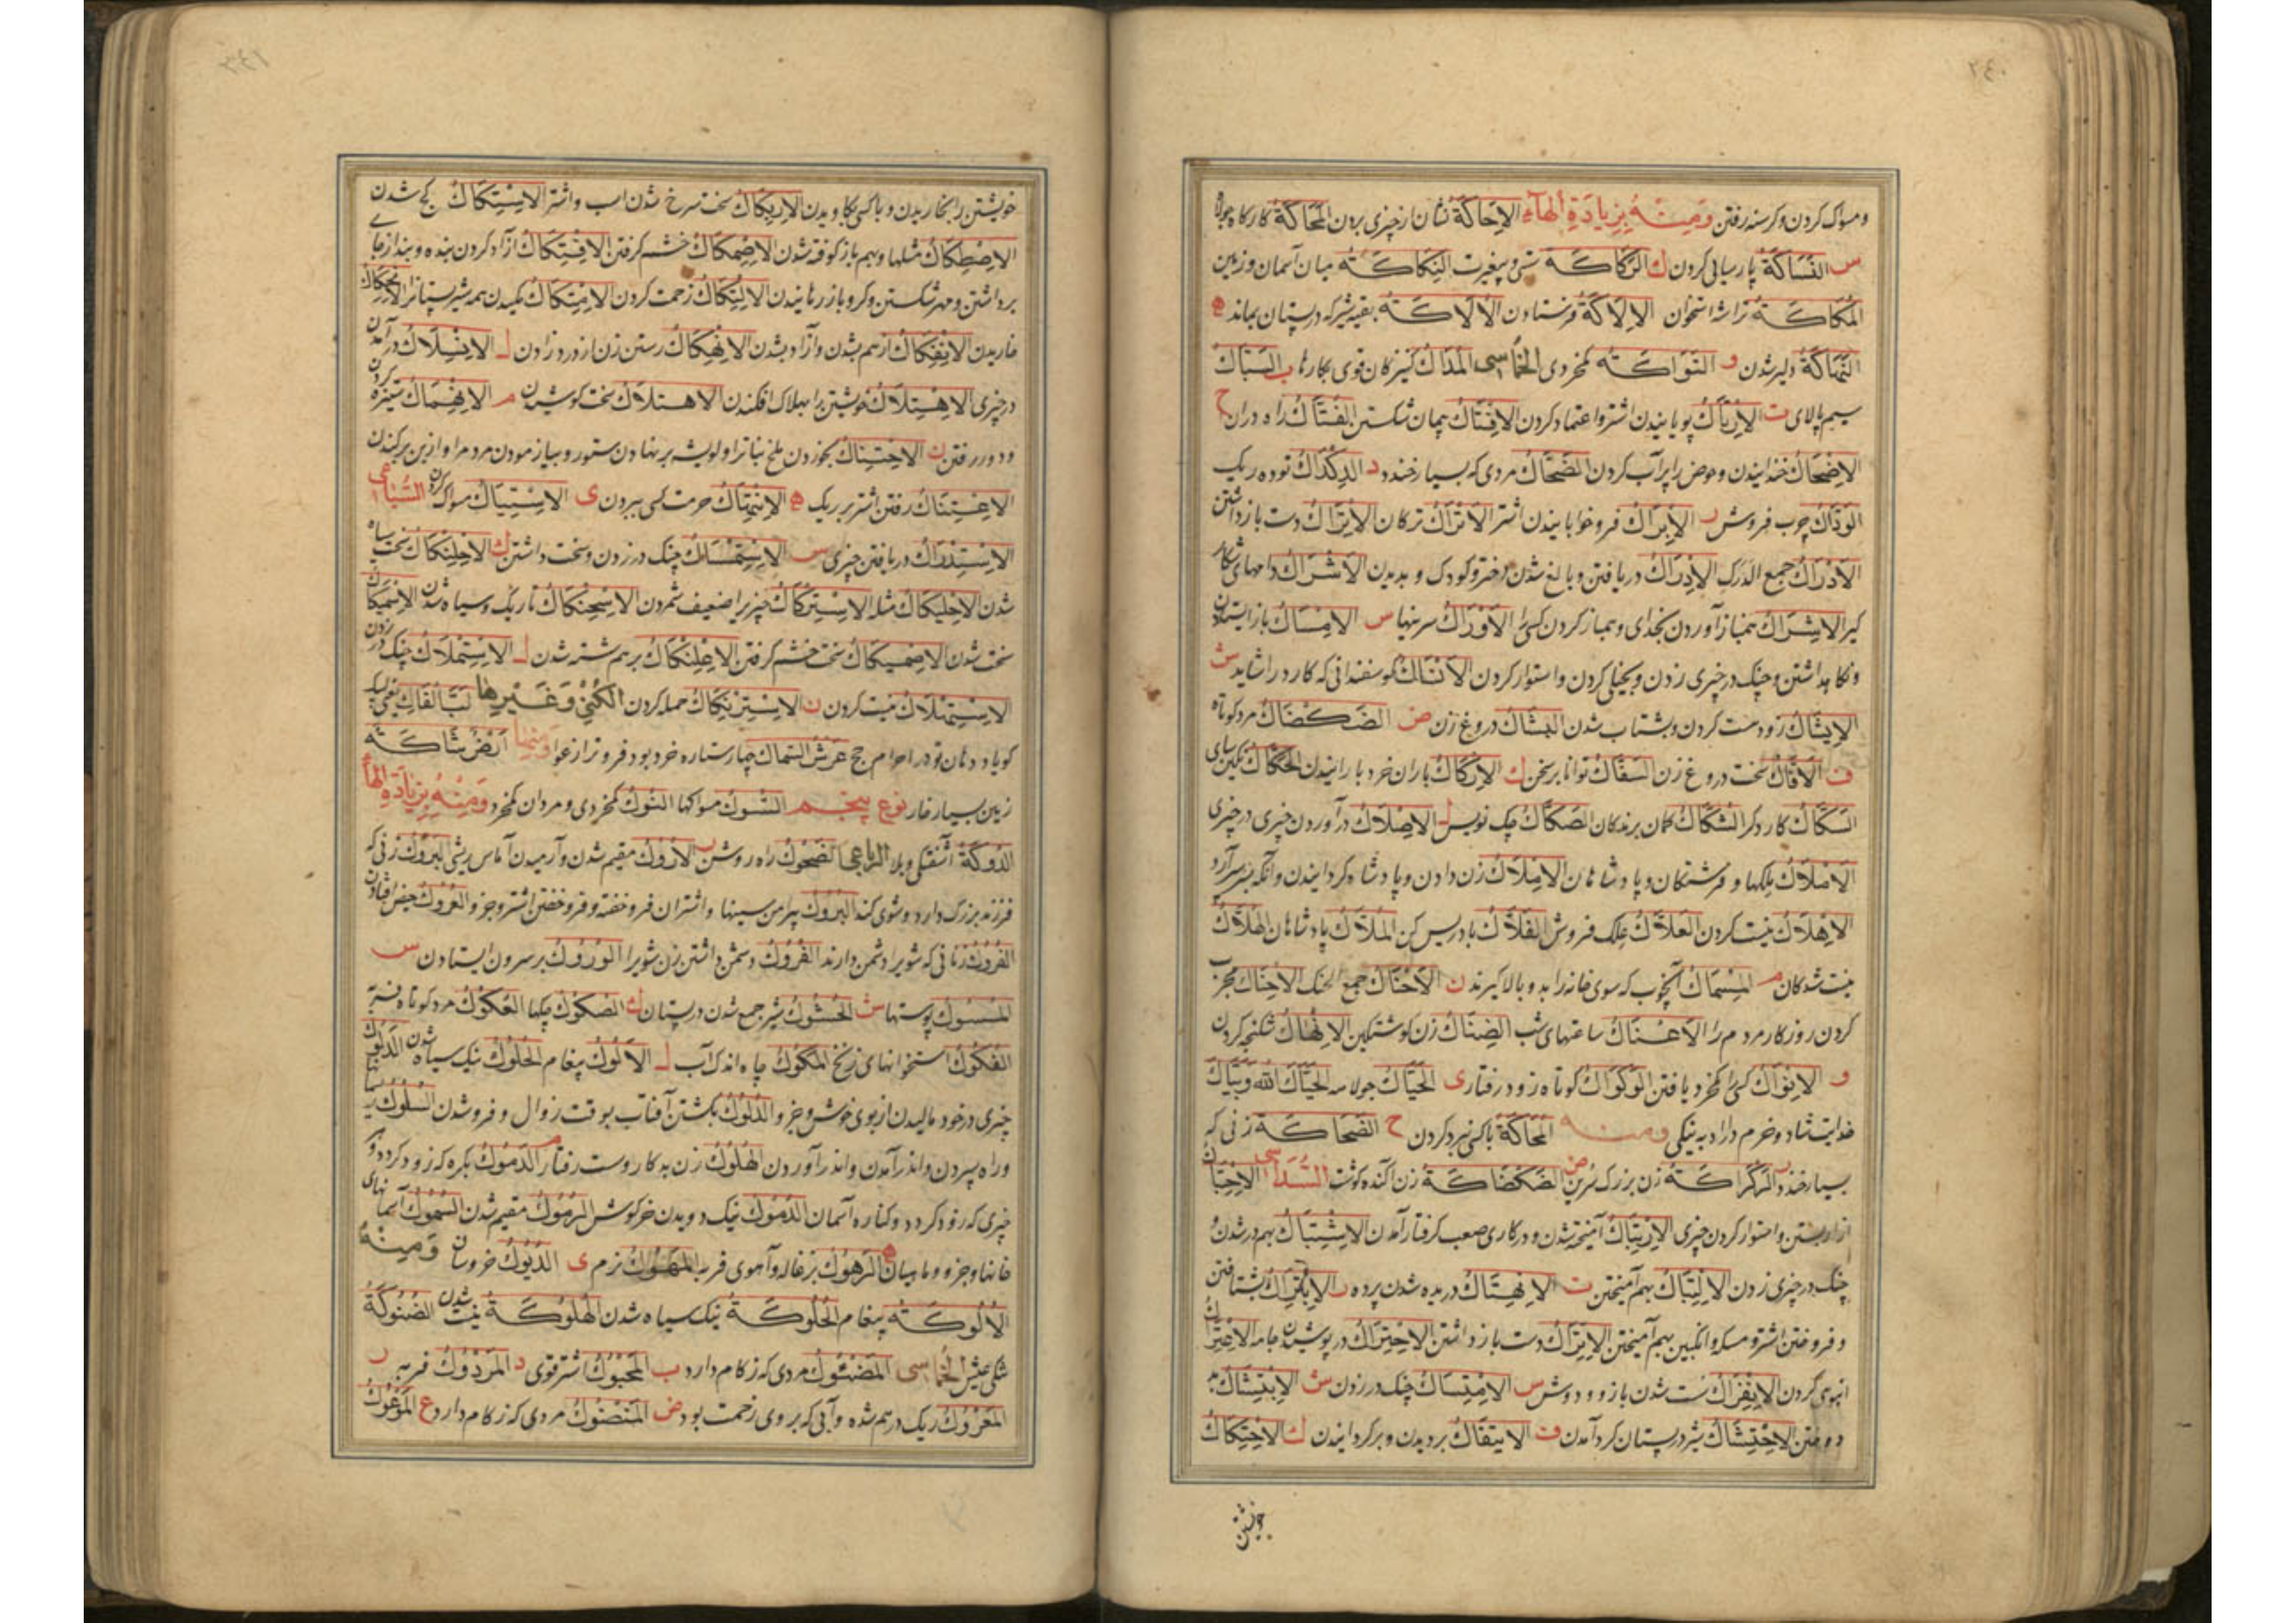 ٢٤٠
ومسواک کردن و کرسنه رفتن وَمِنْهُ بِزِیادَةِ الْهَآءِ الاِحَاکَةُ نشان از چیزی بردن المَحَاکَةُ کارکاه جولاه
س النَّسَاکَةُ پارسایی کردن ك الرَّکَاکَـةُ سُست و بیغیرت النُّکَاکَـةُ میان آسمان و زمین
المُکَاکَـةُ تراشه استخوان الاِلَاکَةُ فرستادن الاَلَاکَـةُ بقیه شیر که در پستان بماند ه
النَّهَاکَةُ دلیر شدن و النَّوَاکَـةُ کمخردی الخماسی المَدَاكُ کنیزکان قوی بکارها ب السَّبَّاكُ
سیم پالای ت الاِرْتَاكُ پویانیدن اشتر و اعتماد کردن الاِفْتَاكُ پیمان شکستن الفُتَّاكُ راه داران ح
الاِضْحَاكُ خندانیدن و حوض را پر آب کردن الضَّحَّاكُ مردی که بسیار خندد د الدَّکْدَاكُ توده ریک
الوَدَّاكُ چوب فروش ر الاِبْرَاكُ فرو خوابانیدن اشتر الاَتْرَاكُ ترکان الاِتْرَاكُ دست بازداشتن
الاَدْرَاكُ جمع الدَّرَك الاِدْرَاكُ دریافتن و بالغ شدن دختر و کودک و بدیدن الاَشْرَاكُ دامهای شکار
کیر الاِشْرَاكُ همباز آوردن بخدای و همباز کردن کسی را الاَوْرَاكُ سرینها س الاِمْسَاكُ بازایستادن
و نکاه داشتن و چنک در چیزی زدن و بخیلی کردن و استوار کردن الاَنْسَاكُ کوسفندانی که کارد را شاید ش
الاِیشَاكُ زود مست کردن و بشتاب شدن البَشَّاكُ دروغ زن ض الضَّـکْضَاكُ مرد کوتاه
ف الاَفَّاكُ سخت دروغ زن السَفَّاكُ توانا بر سخن ك الاِرْکَاكُ باران خرد بارانیدن الحَکَّاكُ نکین سای
السَّکَّاكُ کاردکر الشُّکَّاكُ کمان برندکان الصَّکَّاكُ چک نویس ل الاِصْلَاكُ درآوردن چیزی در چیزی
الاَمْلَاكُ ملکها و فرشتکان و پادشاهان الاِمْلَاكُ زن دادن و پادشاه کردانیدن
الاِهْلَاكُ نیست کردن العَلَّاكُ علک فروش الفَلَّاكُ بادریس کر المُلَّاكُ پادشاهان الهُلَّاكُ
نیست شدکان م المِسْمَاكُ آنچوب که سوی خانه را بدو بالا کیرند ن الاَحْنَاكُ جمع الحنک الاِحْنَاكُ مجرب
کردن روزکار مردم را الاَهْـنَاكُ ساعتهای شب الضِنَاكُ زن کوشتکین الاِنْهَاكُ شکنجه کردن
و الاِنْوَاكُ کسی را کمخرد یافتن الوَکْوَاكُ کوتاه زود رفتار ی الحَیَّاكُ جولاهه الحَیَّاكَ الله وَبَیَّاكَ
خدایت شاد و خرم داراد به نیکی ومنه المُحَاکَةُ با کسی نبرد کردن ح الضَّحَّاکَـةُ زنی که
بسیار خندد ر الرَکْرَاکَـةُ زن بزرک سُرین ض الضَکْضَاکَـةُ زن آکنده کوشت السُّداسی الاِحْتِبَاكُ
ازار بستن و استوار کردن چیزی الاِرْتِبَاكُ آمیخته شدن و در کاری صعب کرفتار آمدن الاِشْتِبَاكُ بهم درشدن
چنک در چیزی زدن الاِلْتِبَاكُ بهم آمیختن ت الاِنهِتَاكُ دریده شدن پرده ر الاِبْتِرَاكُ بشتافتن
و فرو خفتن اشتر و مسکه و انکبین بهم آمیختن الاِتِّرَاكُ دست بازداشتن الاِحْتِرَاكُ در پوشیدن جامه الاِعْتِرَاكُ
انبوهی کردن الاِنْفِرَاكُ سُست شدن بازو و دوش س الاِمْتِسَاكُ چنک در زدن ش الاِبْتِشَاكُ
الاِحْتِشَاكُ شیر در پستان کرد آمدن ف الایتفَاكُ بردیدن و برکردانیدن ك الاِحْتِکَاكُ
خویشتن
٣٤١
خویشتن را بخاریدن و با کسی کاویدن الاِرتِکَاكُ سخت سرخ شدن اسب و اشتر الاِسْتِکَاكُ کج شدن
الاِصْطِکَاكُ مثلها و بهم بازکوفته شدن الاِضمِکَاكُ خشم کرفتن الاِفْتِکَاكُ آزاد کردن بنده و بند از جای
برداشتن و مهر شکستن و کرو باز رهانیدن الاِلتِکَاكُ زحمت کردن الاِمْتِکَاكُ مکیدن همه شیر پستانرا
خاریدن الاِنفِکَاكُ از هم بشدن و آزاد بشدن الاِنهِکَاكُ رستن زن از درد زادن ل الاِنسِلَاكُ درآمدن
در چیزی الاِهْتِلَاكُ خویشتن را بهلاک افکندن الاهتلاكُ سخت کوشیدن م الاِنهِمَاكُ ستیزه کردن
و دور رفتن ن الاِحْتِنَاكُ بخوردن ملخ نباترا و لویشه برنهادن ستور و بیازمودن مردم را و از بن برکندن
الاِعْتِنَاكُ رفتن اشتر بر ریک ه الاِنْتِهَاكُ حرمت کسی ببردن ی الاِسْتِیَاكُ مسواک کردن السُّباعی
الاِسْتِدْرَاكُ دریافتن چیزی س الاِسْتِمْسَاكُ چنک در زدن و سخت داشتن ك الاحْلِنکَاكُ سخت سیاه
شدن الاِحْلِیکَاكُ مثله الاِسْتِرْکَاكُ چیزی را ضعیف شمردن الاِسْحِنکَاكُ تاریک و سیاه شدن الاِسْمِیکَاكُ
سخت شدن الاِضمِیکَاكُ سخت خشم کرفتن الاِعْلِنْکَاكُ برهم نشسته شدن ل الاِسْتِمْلَاكُ چنک در زدن
الاِسْتِهْلَاكُ نیست کردن ن الاِسْتِرْنِکَاكُ حمله کردن الکُنٰی وَغَیْرِها
عَرْشُ السّماك چهار ستاره خرد بود فروتر از عوا ومنها اَرضٌ شَاکَـةٌ
زمین بسیار خار نوع پنجم السُّوكُ مسواکها النُوكُ کمخردی و مردان کمخرد وَمِنْهُ بِزِیَادَةِ الْهَآءِ
الدُوکَةُ آشفتکی و بلا الرباعی الضَحُوكُ راه روشن ر الاُرُوكُ مقیم شدن و آرمیدن آماس ریش البَرُوكُ زنی که
فرزند بزرک دارد و شوی کند البُرُوكُ پیرامن سینها و اشتران فرو خفته و فرو خفتن اشتر و جز و العُرُوكُ حیض افتادن
الفُرُوكُ زنانی که شویرا دشمن دارند الفُرُوكُ دشمن داشتن زن شویرا الوُرُوكُ بر سرون ایستادن س
المُسُوكُ پوستها ش الحُشُوكُ شیر جمع شدن در پستان ك الصُکُوكُ چکها العَکَوَّكُ مرد کوتاه فربه
الفُکُوكُ استخوانهای زنخ المَکُوكُ چاه اندک آب ل الاَلُوكُ پیغام الحُلُوكُ نیک سیاه شدن الدَلُوكُ
چیزی در خود مالیدن از بوی خوش و جز و الدُلُوكُ بکشتن آفتاب بوقت زوال و فرو شدن السُلُوكُ
و راه سپردن و اندر آمدن و اندر آوردن الهَلُوكُ زن بدکار و سست رفتار م الدَمُوكُ بکره که زود کردد و
چیزی که زود کردد و کناره آسمان الدُمُوكُ نیک دویدن خرکوش الرُمُوكُ مقیم شدن السُمُوكُ آسمانهای
خانها و جز و و ماهیان ه الرَهُوكُ بزغاله و آهوی فربه المَهُوكُ نرم ی الدُیُوكُ خروسان وَمِنْهُ
الاَلُوکَـةُ پیغام الحُلُوکَـةُ نیک سیاه شدن الهُلُوکَـةُ نیست شدن الضُنُوکَةُ
تنکی عیش الخماسی المَضْئُوكُ مردی که زکام دارد ب المَحْبُوكُ اشتر قوی د المَرْدُوكُ فربه ر
المَعْرُوكُ ریک درهم شده و آبی که بر وی زحمت بود ض المَضْنُوكُ مردی که زکام دارد ع المَوْعُوكُ